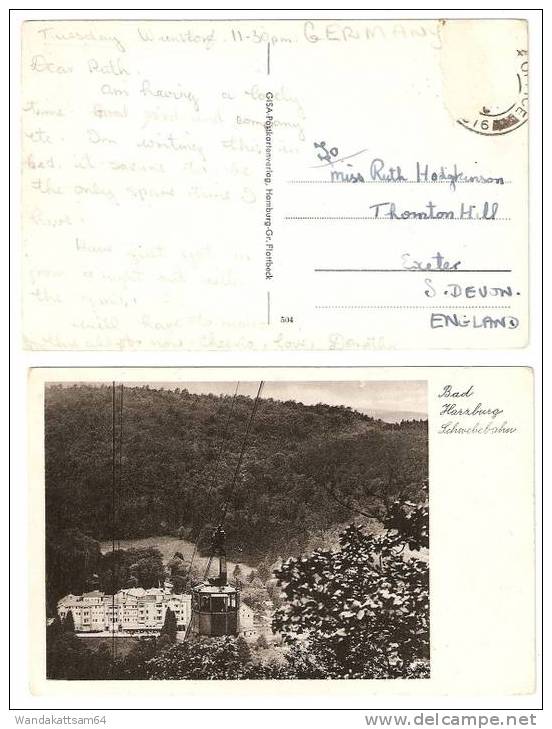 Tuesday Wunstorf 11-30pm. GERMANY
Dear Ruth.
Am having a lovely
time. Good food and company
etc. I'm writing this in
bed it seems to be
the only spare time I
have!
Have just got in
from a night out with
the
will have to
now Cheerio, Love, Dorothy
GISA-Postkartenverlag, Hamburg-Gr. Flottbeck
504
OFFICE
916
To
Miss Ruth Hodgkinson
Thornton Hill
Exeter
S. DEVON.
ENGLAND
Bad
Harzburg
Schwebebahn
Wandakattsam64
www.delcampe.net